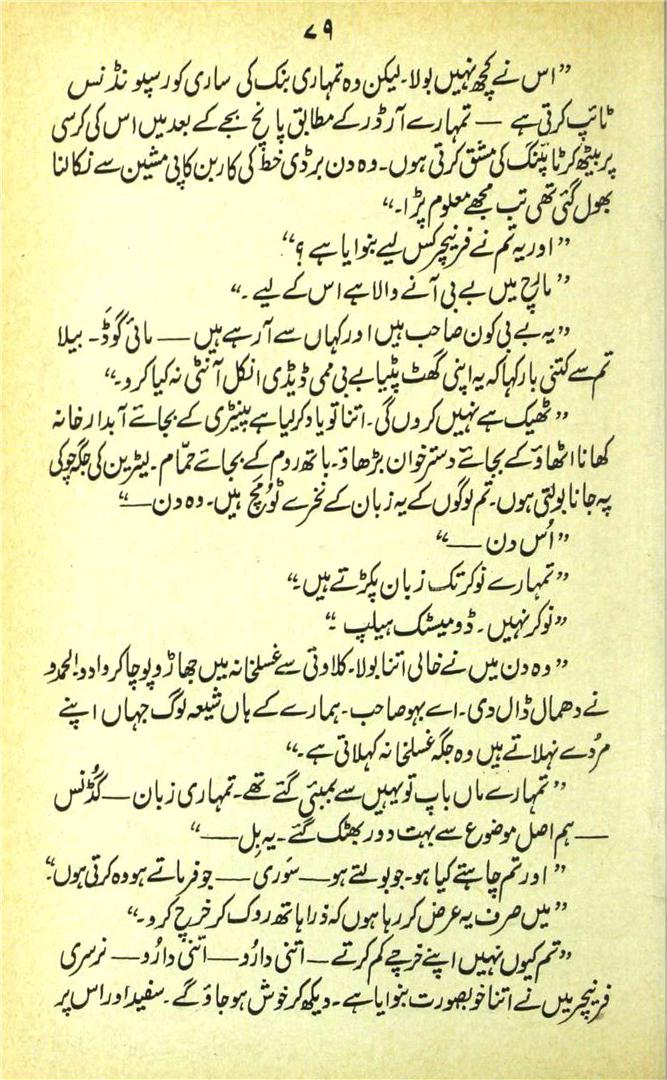 ۷۹
”اس نے کچھ نہیں بولا۔ لیکن وہ تمہاری بنک کی ساری کورسپونڈنس
ٹائپ کرتی ہے — تمہارے آرڈر کے مطابق پانچ بجے کے بعد میں اس کی کرسی
پر بیٹھ کر ٹائپنگ کی مشق کرتی ہوں۔ وہ دن برڈی خط کی کاربن کاپی مشین سے نکالنا
بھول گئی تھی تب مجھے معلوم پڑا۔“
”اور یہ تم نے فرنیچر کس لیے بنوایا ہے؟“
”مارچ میں بے بی آنے والا ہے اس کے لیے۔“
”یہ بے بی کون صاحب ہیں اور کہاں سے آ رہے ہیں — مائی گوڈ۔ بیلا
تم سے کتنی بار کہا کہ یہ اپنی گھٹ پٹیا بے بی ممی ڈیڈی انکل آنٹی نہ کیا کرو۔“
”ٹھیک ہے نہیں کروں گی۔ اتنا تو یاد کر لیا ہے پینٹری کے بجائے آبدار خانہ
کھانا اٹھاؤ کے بجائے دسترخوان بڑھاؤ۔ باتھ روم کے بجائے حمّام۔ لیٹرین کی جگہ چوکی
پہ جانا بولتی ہوں۔ تم لوگوں کے یہ زبان کے نخرے ٹومچ ہیں۔ وہ دن —“
”اُس دن —“
”تمہارے نوکر تک زبان پکڑتے ہیں۔“
”نوکر نہیں۔ ڈومیسٹک ہیلپ۔“
”وہ دن میں نے خالی اتنا بولا۔ کلاوتی سے غسلخانہ میں جھاڑو پوچا کروا دو۔ الحمدو
نے دھمال ڈال دی۔ اے بہو صاحب۔ ہمارے کے ہاں شیعہ لوگ جہاں اپنے
مُردے نہلاتے ہیں وہ جگہ غسلخانہ کہلاتی ہے۔“
”تمہارے ماں باپ تو یہیں سے بمبئی گئے تھے۔ تمہاری زبان — گُڈنس
— ہم اصل موضوع سے بہت دور بھٹک گئے۔ یہ بِل —“
”اور تم چاہتے کیا ہو۔ جو بولتے ہو — سَوری — جو فرماتے ہو وہ کرتی ہوں۔“
”میں صرف یہ عرض کر رہا ہوں کہ ذرا ہاتھ روک کر خرچ کرو۔“
”تم کیوں نہیں اپنے خرچے کم کرتے — اتنی دارُو — اتنی دارُو — نرسری
فرنیچر میں نے اتنا خوبصورت بنوایا ہے۔ دیکھ کر خوش ہو جاؤ گے۔ سفید اور اس پر